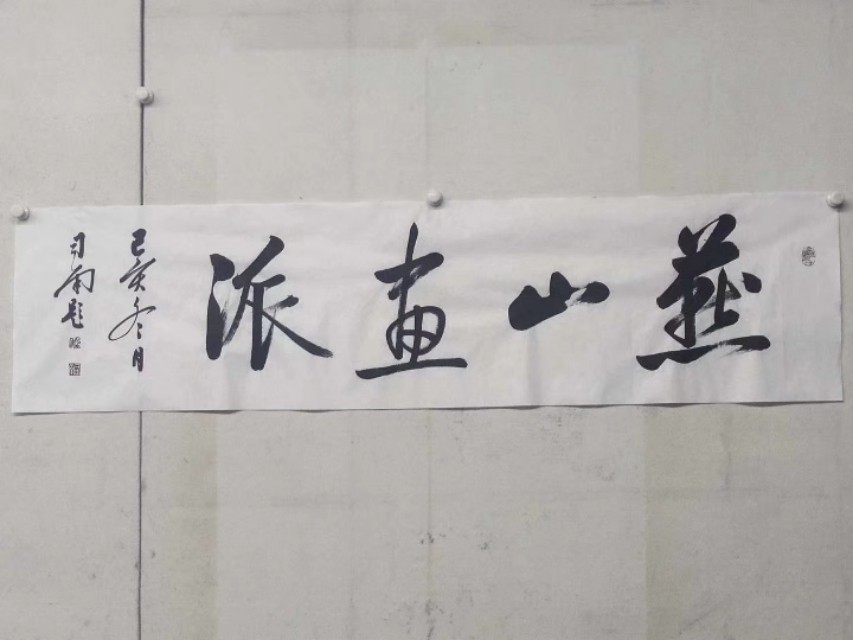 燕山画派
己亥冬月
司南题